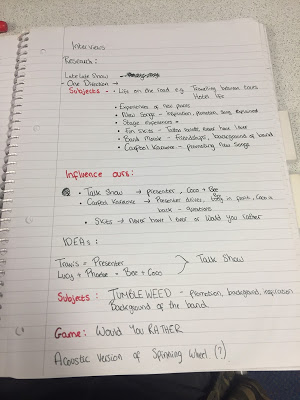 Interviews
Research:
Late Late Show →
- One Direction →
Subjects - • Life on the road e.g. Travelling between tours
Hotel life
• Experiences of new places
• New Songs - Inspiration, promotion, Song explained
• Stage experiences
• Fun skits - Tattoo roulette, Never have I ever
• Band Movie - friendships, background of band
• Carpool Karaoke - promoting New Songs
Influence ours:
• Talk Show → presenter, Coco + Bee
• Carpool Karaoke → Presenter driver, Lucy + Bee in front, Coco in
back - questions
• Skits → Never have I ever or would you rather
IDEAs:
Travis = Presenter
Lucy + Phoebe = Bee + Coco
Talk Show
Subjects: TUMBLEWEED - promotion, background, inspiration
Background of the band.
Game: Would You RATHER
Acoustic Version of Spinning Wheel (?)